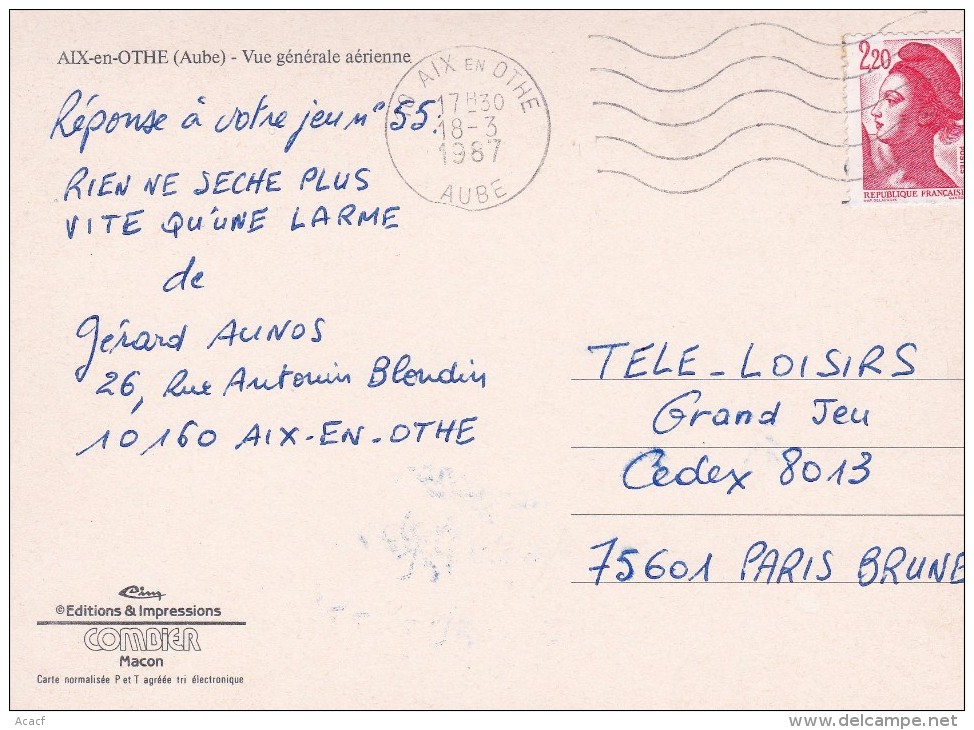 AIX-en-OTHE (Aube) - Vue générale aérienne
Réponse à votre jeu n° 55:
RIEN NE SECHE PLUS
VITE QU'UNE LARME
de
Gérard AUNOS
26, Rue Antonin Blondin
10160 AIX-EN-OTHE
10 AIX EN OTHE
17H30
18-3
1987
AUBE
2,20
POSTES
REPUBLIQUE FRANÇAISE
TELE-LOISIRS
Grand Jeu
Cedex 8013
75601 PARIS BRUNE
©Editions & Impressions
COMBIER
Macon
Carte normalisée P et T agréée tri électronique
Acacf
www.delcampe.net